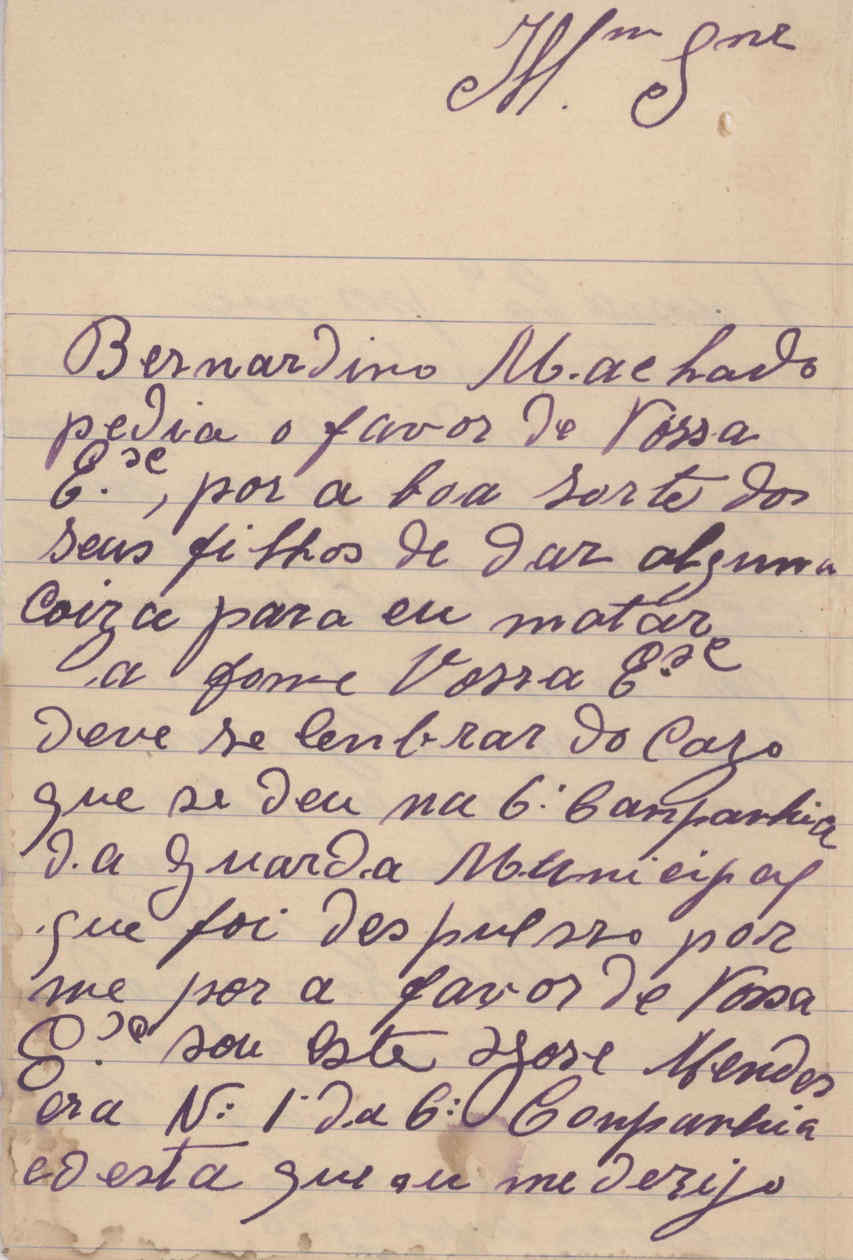 Illm Snr
Bernardino Machado
pedia o favor de Vossa
E.xe, por a boa sorte dos
seus filhos de dar alguma
Coiza para eu matar
a fome Vossa E.xe
deve se lenbrar do Cazo
que se deu na 6.ª Canpanhia
da Guarda Municipal
que foi despulsso por
me por a favor de Vossa
E.xe sou este Jose Mendes
era N.º 1 da 6.ª Conpanhia
e desta que eu me derijo